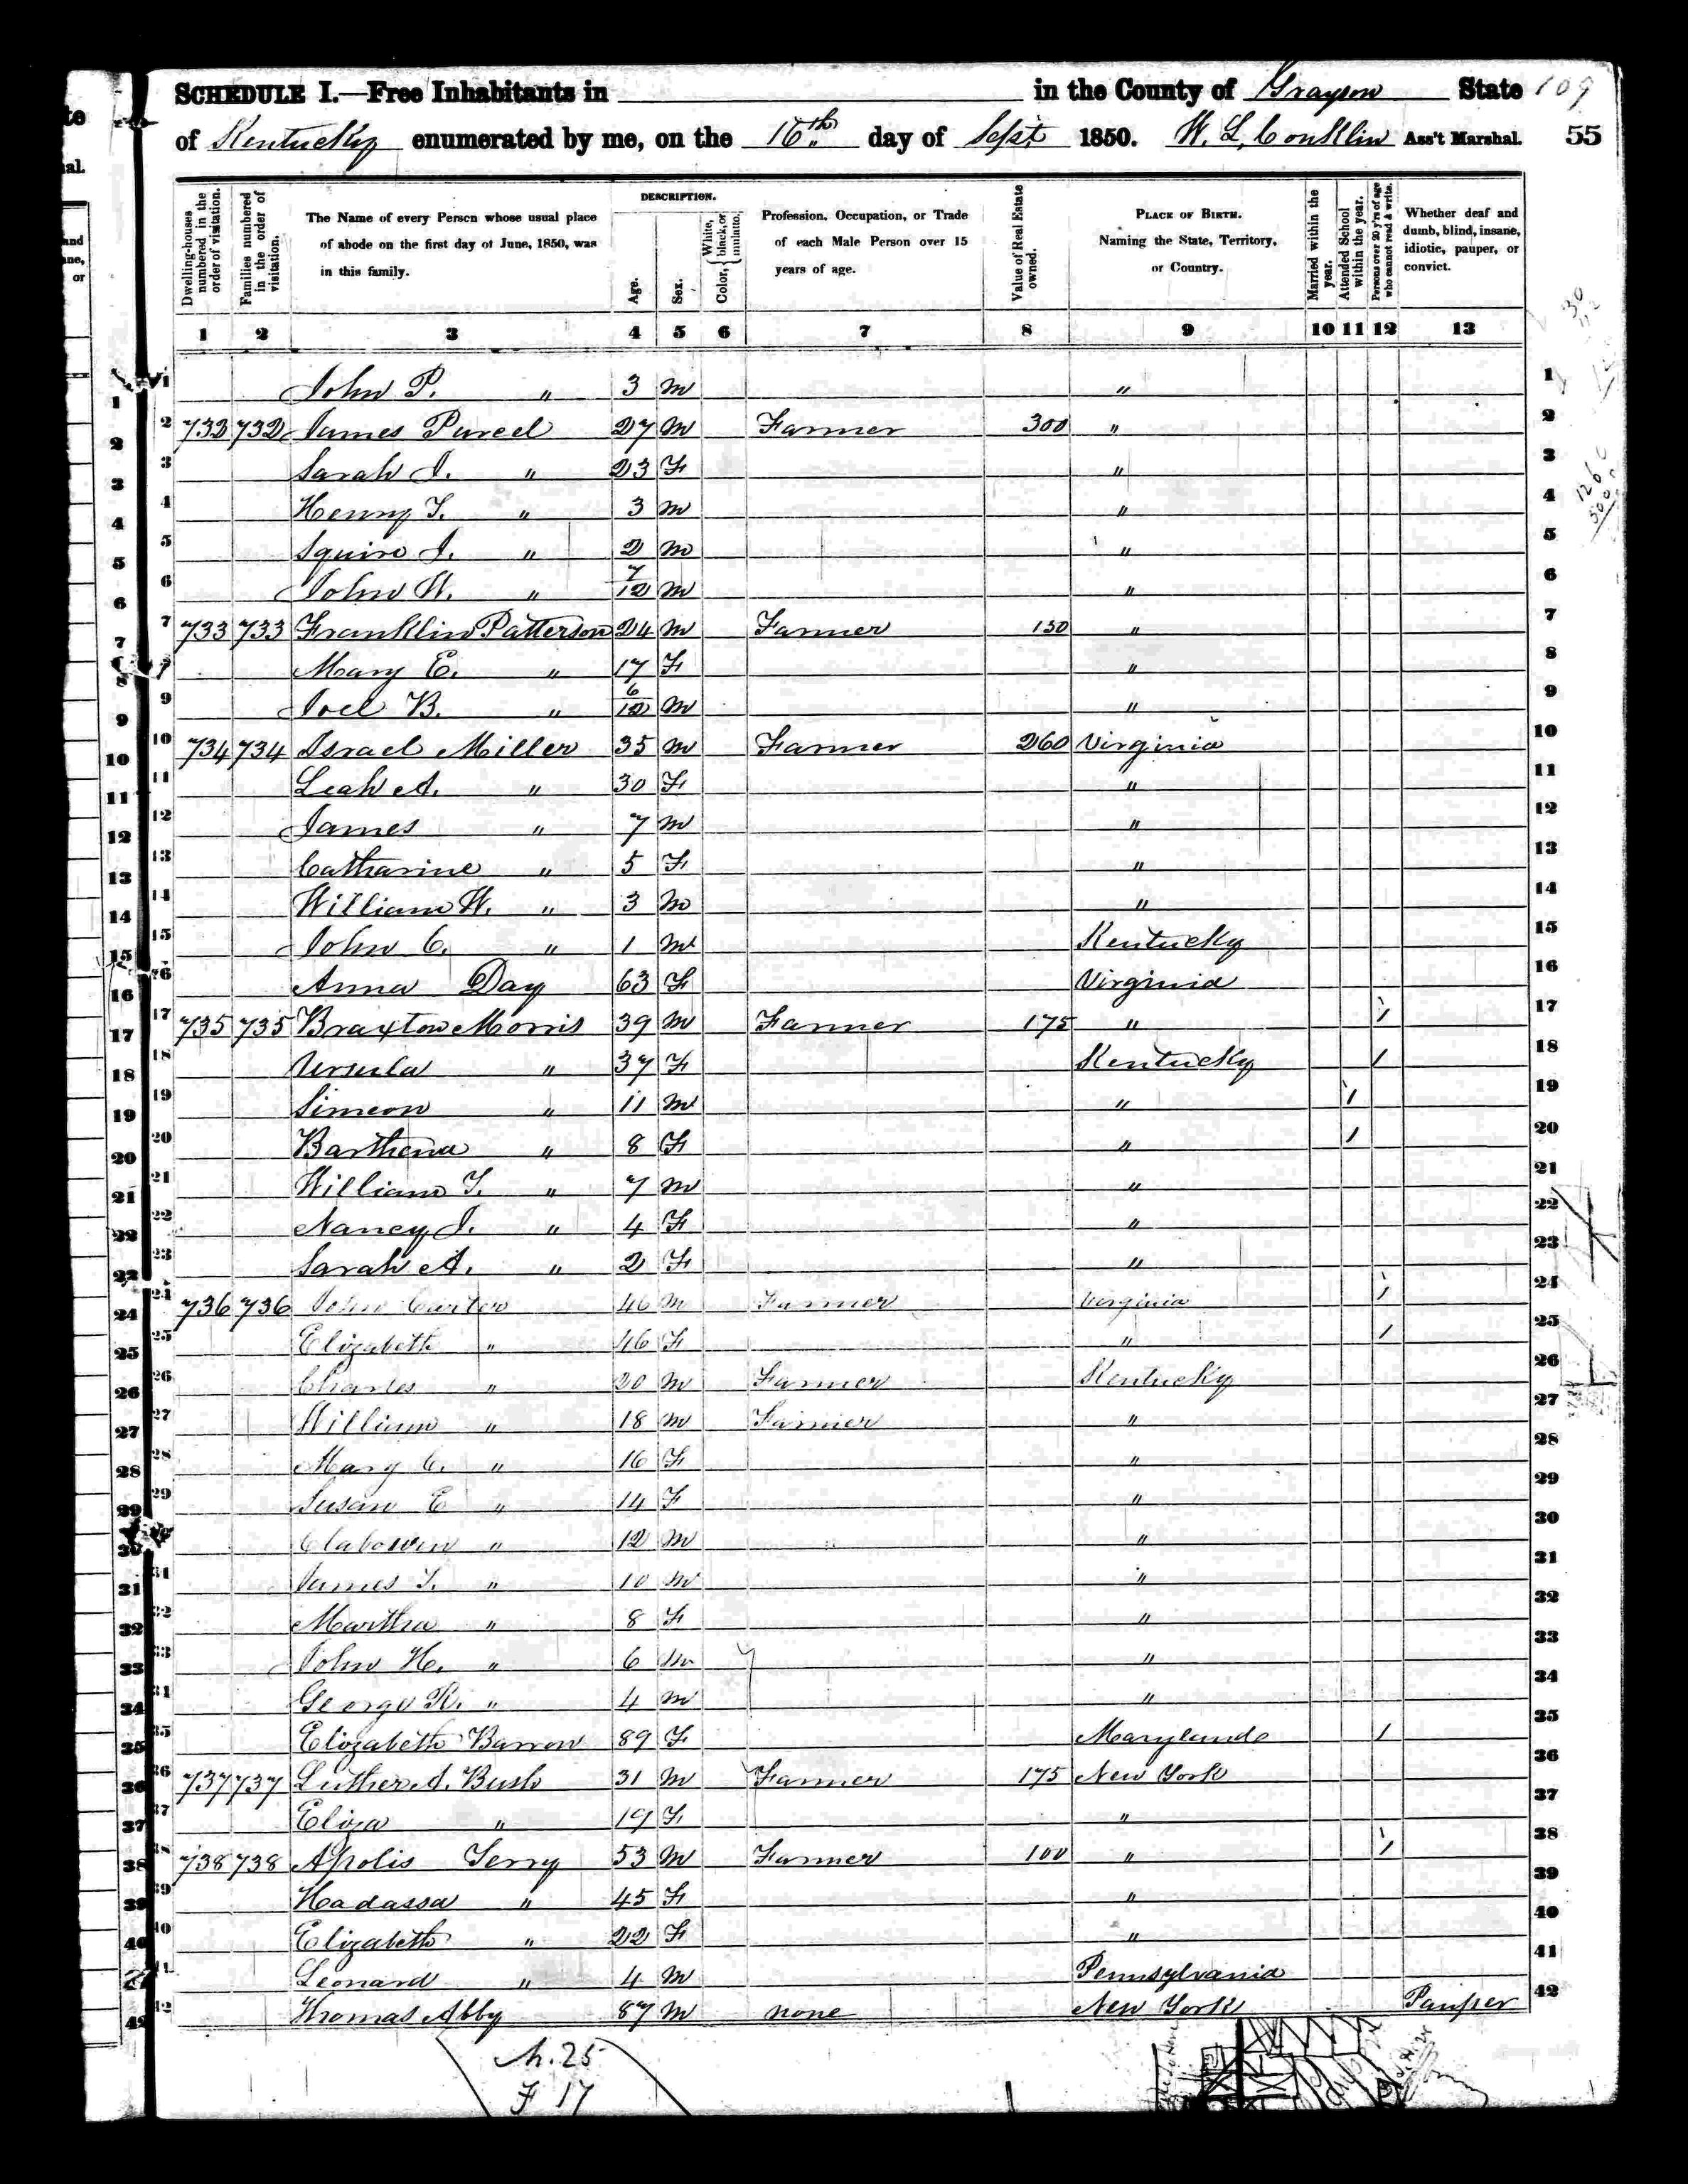 SCHEDULE I.—Free Inhabitants in in the County of Grayson State 109
of Kentucky enumerated by me, on the 16th day of Sept 1850. W. L. Conklin Ass't Marshal. 55
Dwelling-houses numbered in the order of visitation.
Families numbered in the order of visitation.
The Name of every Person whose usual place of abode on the first day of June, 1850, was in this family.
DESCRIPTION.
Age.
Sex.
Color, White, black, or mulatto.
Profession, Occupation, or Trade of each Male Person over 15 years of age.
Value of Real Estate owned.
PLACE OF BIRTH. Naming the State, Territory, or Country.
Married within the year.
Attended School within the year.
Persons over 20 y'rs of age who cannot read & write.
Whether deaf and dumb, blind, insane, idiotic, pauper, or convict.
1 2 3 4 5 6 7 8 9 10 11 12 13
1 John P. " 3 m " 1
2 732 732 James Purcel 27 m Farmer 300 " 2
3 Sarah J. " 23 F " 3
4 Henry T. " 3 m " 4
5 Squire J. " 2 m " 5
6 John W. " 7/12 m " 6
7 733 733 Franklin Patterson 24 m Farmer 150 " 7
8 Mary E. " 17 F " 8
9 Joel B. " 6/12 m " 9
10 734 734 Israel Miller 35 m Farmer 260 Virginia 10
11 Leah A. " 30 F " 11
12 James " 7 m " 12
13 Catharine " 5 F " 13
14 William W. " 3 m " 14
15 John C. " 1 m Kentucky 15
16 Anna Day 63 F Virginia 16
17 735 735 Braxton Morris 39 m Farmer 175 " / 17
18 Ursula " 37 F Kentucky / 18
19 Simeon " 11 m " / 19
20 Barthena " 8 F " / 20
21 William T. " 7 m " 21
22 Nancy J. " 4 F " 22
23 Sarah A. " 2 F " 23
24 736 736 John Carter 46 m Farmer Virginia / 24
25 Elizabeth " 46 F " / 25
26 Charles " 20 m Farmer Kentucky 26
27 William " 18 m Farmer " 27
28 Mary C. " 16 F " 28
29 Susan E " 14 F " 29
30 " 12 m " 30
31 James T. " 10 m " 31
32 Martha " 8 F " 32
33 John H. " 6 m " 33
34 George R. " 4 m " 34
35 Elizabeth Barron 89 F Maryland / 35
36 737 737 Luther A. Bush 31 m Farmer 175 New York 36
37 Eliza " 19 F " 37
38 738 738 Apolis Terry 53 m Farmer 100 " / 38
39 Hadassa " 45 F " 39
40 Elizabeth " 22 F " 40
41 Leonard " 4 m Pennsylvania 41
42 Thomas Abby 87 m none New York Pauper 42
M. 25
F 17